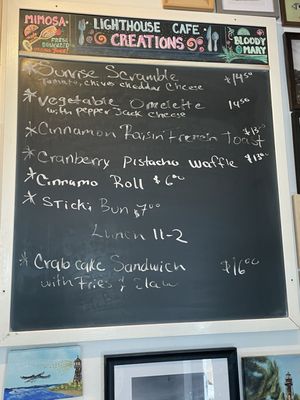 MIMOSA
FRESH SQUEEZED
LIGHTHOUSE CAFE
CREATIONS
BLOODY MARY
Sunrise Scramble $14.50
Tomato, chives cheddar cheese
Vegetable Omelette 14.50
with pepper Jack cheese
Cinnamon Raisin French Toast $13.00
Cranberry Pistachio Waffle $13.00
Cinnamo Roll $6.00
Sticki Bun $7.00
Lunch 11-2
Crab cake Sandwich $16.00
with Fries & Slaw